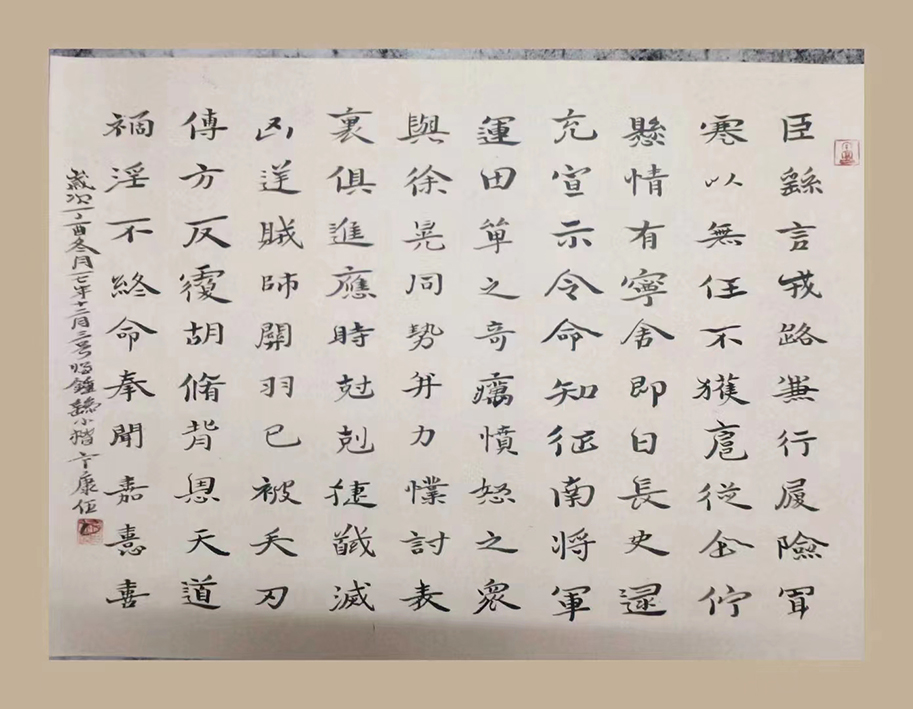 臣繇言戎路兼行履險冒
寒以無任不獲扈從企佇
懸情有寧舍即日長史逯
充宣示令命知征南將軍
運田單之奇癘憤怒之衆
與徐晃同勢并力討表
裏俱進應時尅剋捷馘滅
凶逆賊帥關羽已被矢刃
傅方反覆胡脩背恩天道
禍淫不終命奉聞嘉憙喜
歲次丁酉冬月一七年十二月三号临鍾繇小楷卞康任